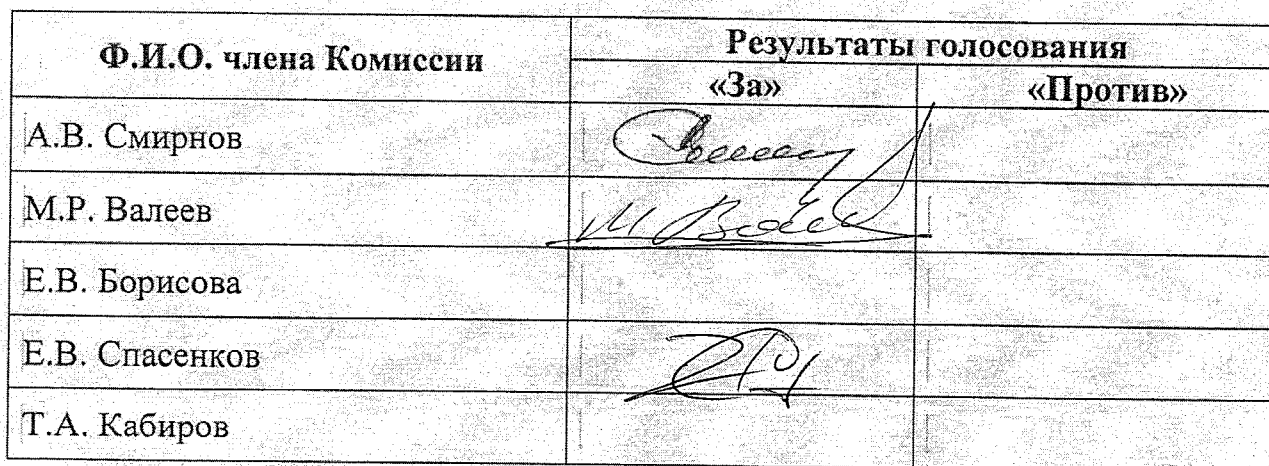 Ф.И.О. члена Комиссии
Результаты голосования
«За»
«Против»
А.В. Смирнов
М.Р. Валеев
Е.В. Борисова
Е.В. Спасенков
Т.А. Кабиров